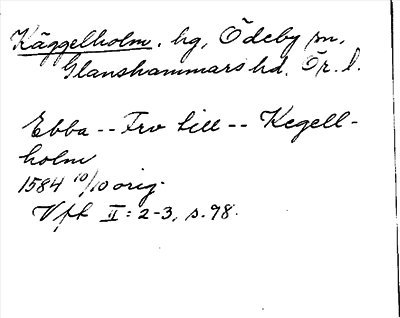 Käggelholm. hg, Ödeby sn,
Glanshammars hd. Ör. l.
Ebba -- Frv till -- Kegell-
holm
1584 10/10 orig.
Vfk II: 2-3, s. 98.